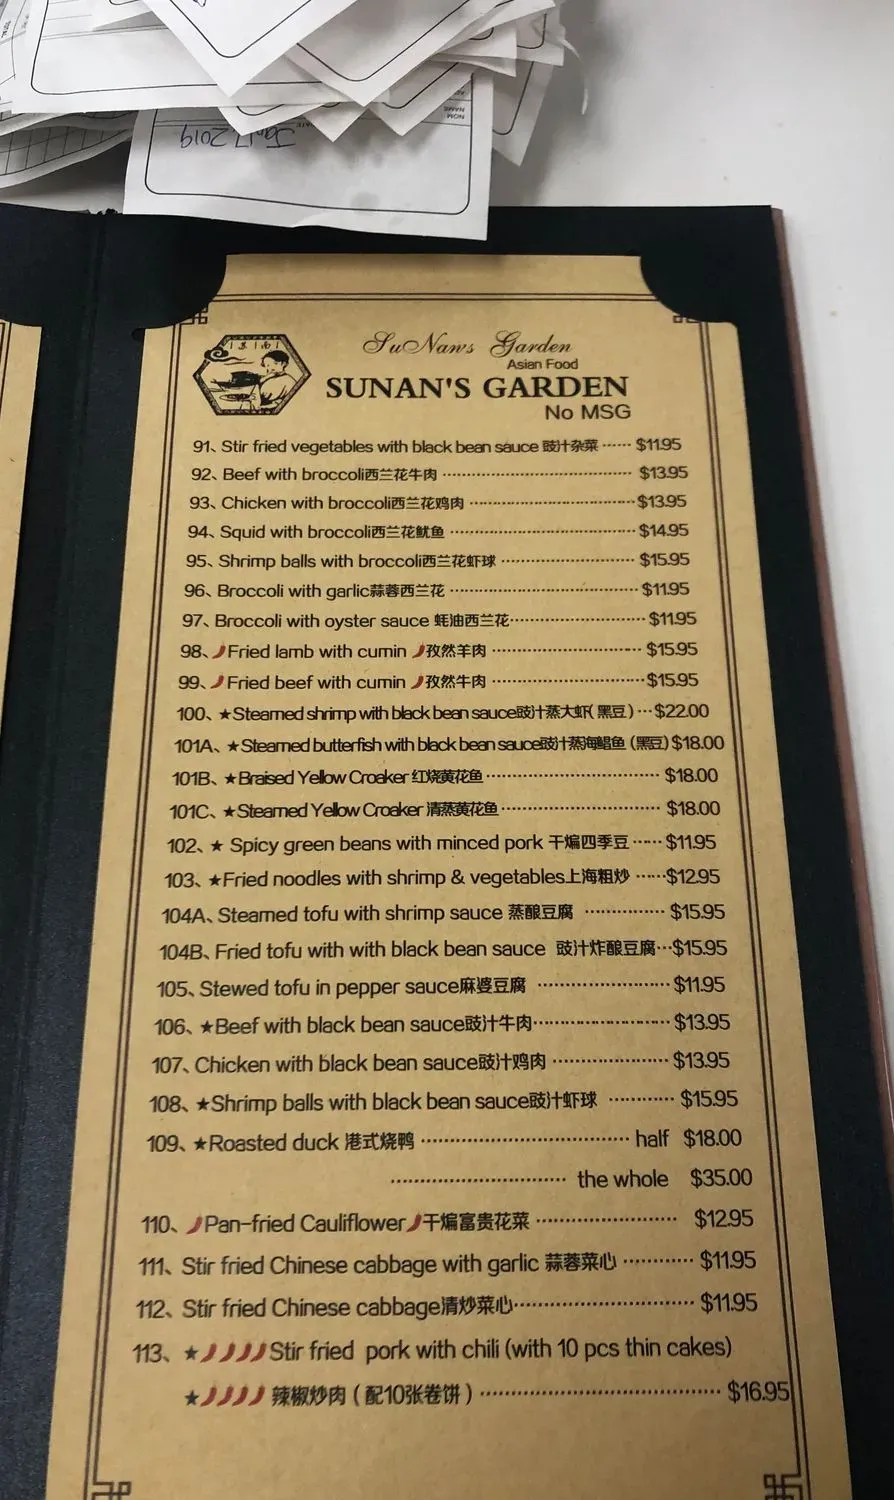 NOM
NAME
Jan 17, 2019
苏南
SuNan's Garden
Asian Food
SUNAN'S GARDEN
No MSG
91、Stir fried vegetables with black bean sauce 豉汁杂菜 ······ $11.95
92、Beef with broccoli西兰花牛肉 ······ $13.95
93、Chicken with broccoli西兰花鸡肉 ······ $13.95
94、Squid with broccoli西兰花鱿鱼 ······ $14.95
95、Shrimp balls with broccoli西兰花虾球 ······ $15.95
96、Broccoli with garlic蒜蓉西兰花 ······ $11.95
97、Broccoli with oyster sauce 蚝油西兰花······ $11.95
98、Fried lamb with cumin 孜然羊肉 ······ $15.95
99、Fried beef with cumin 孜然牛肉 ······ $15.95
100、★Steamed shrimp with black bean sauce豉汁蒸大虾( 黑豆 ) ··· $22.00
101A、★Steamed butterfish with black bean sauce豉汁蒸海鲳鱼 (黑豆) $18.00
101B、★Braised Yellow Croaker 红烧黄花鱼 ······ $18.00
101C、★Steamed Yellow Croaker 清蒸黄花鱼 ······ $18.00
102、★ Spicy green beans with minced pork 干煸四季豆 ······ $11.95
103、★Fried noodles with shrimp & vegetables上海粗炒 ······ $12.95
104A、Steamed tofu with shrimp sauce 蒸酿豆腐 ······ $15.95
104B、Fried tofu with with black bean sauce 豉汁炸酿豆腐··· $15.95
105、Stewed tofu in pepper sauce麻婆豆腐 ······ $11.95
106、★Beef with black bean sauce豉汁牛肉······ $13.95
107、Chicken with black bean sauce豉汁鸡肉 ······ $13.95
108、★Shrimp balls with black bean sauce豉汁虾球 ······ $15.95
109、★Roasted duck 港式烧鸭 ······ half $18.00
······ the whole $35.00
110、Pan-fried Cauliflower干煸富贵花菜 ······ $12.95
111、Stir fried Chinese cabbage with garlic 蒜蓉菜心 ······ $11.95
112、Stir fried Chinese cabbage清炒菜心······ $11.95
113、★Stir fried pork with chili (with 10 pcs thin cakes)
★辣椒炒肉 ( 配10张卷饼 ) ······ $16.95